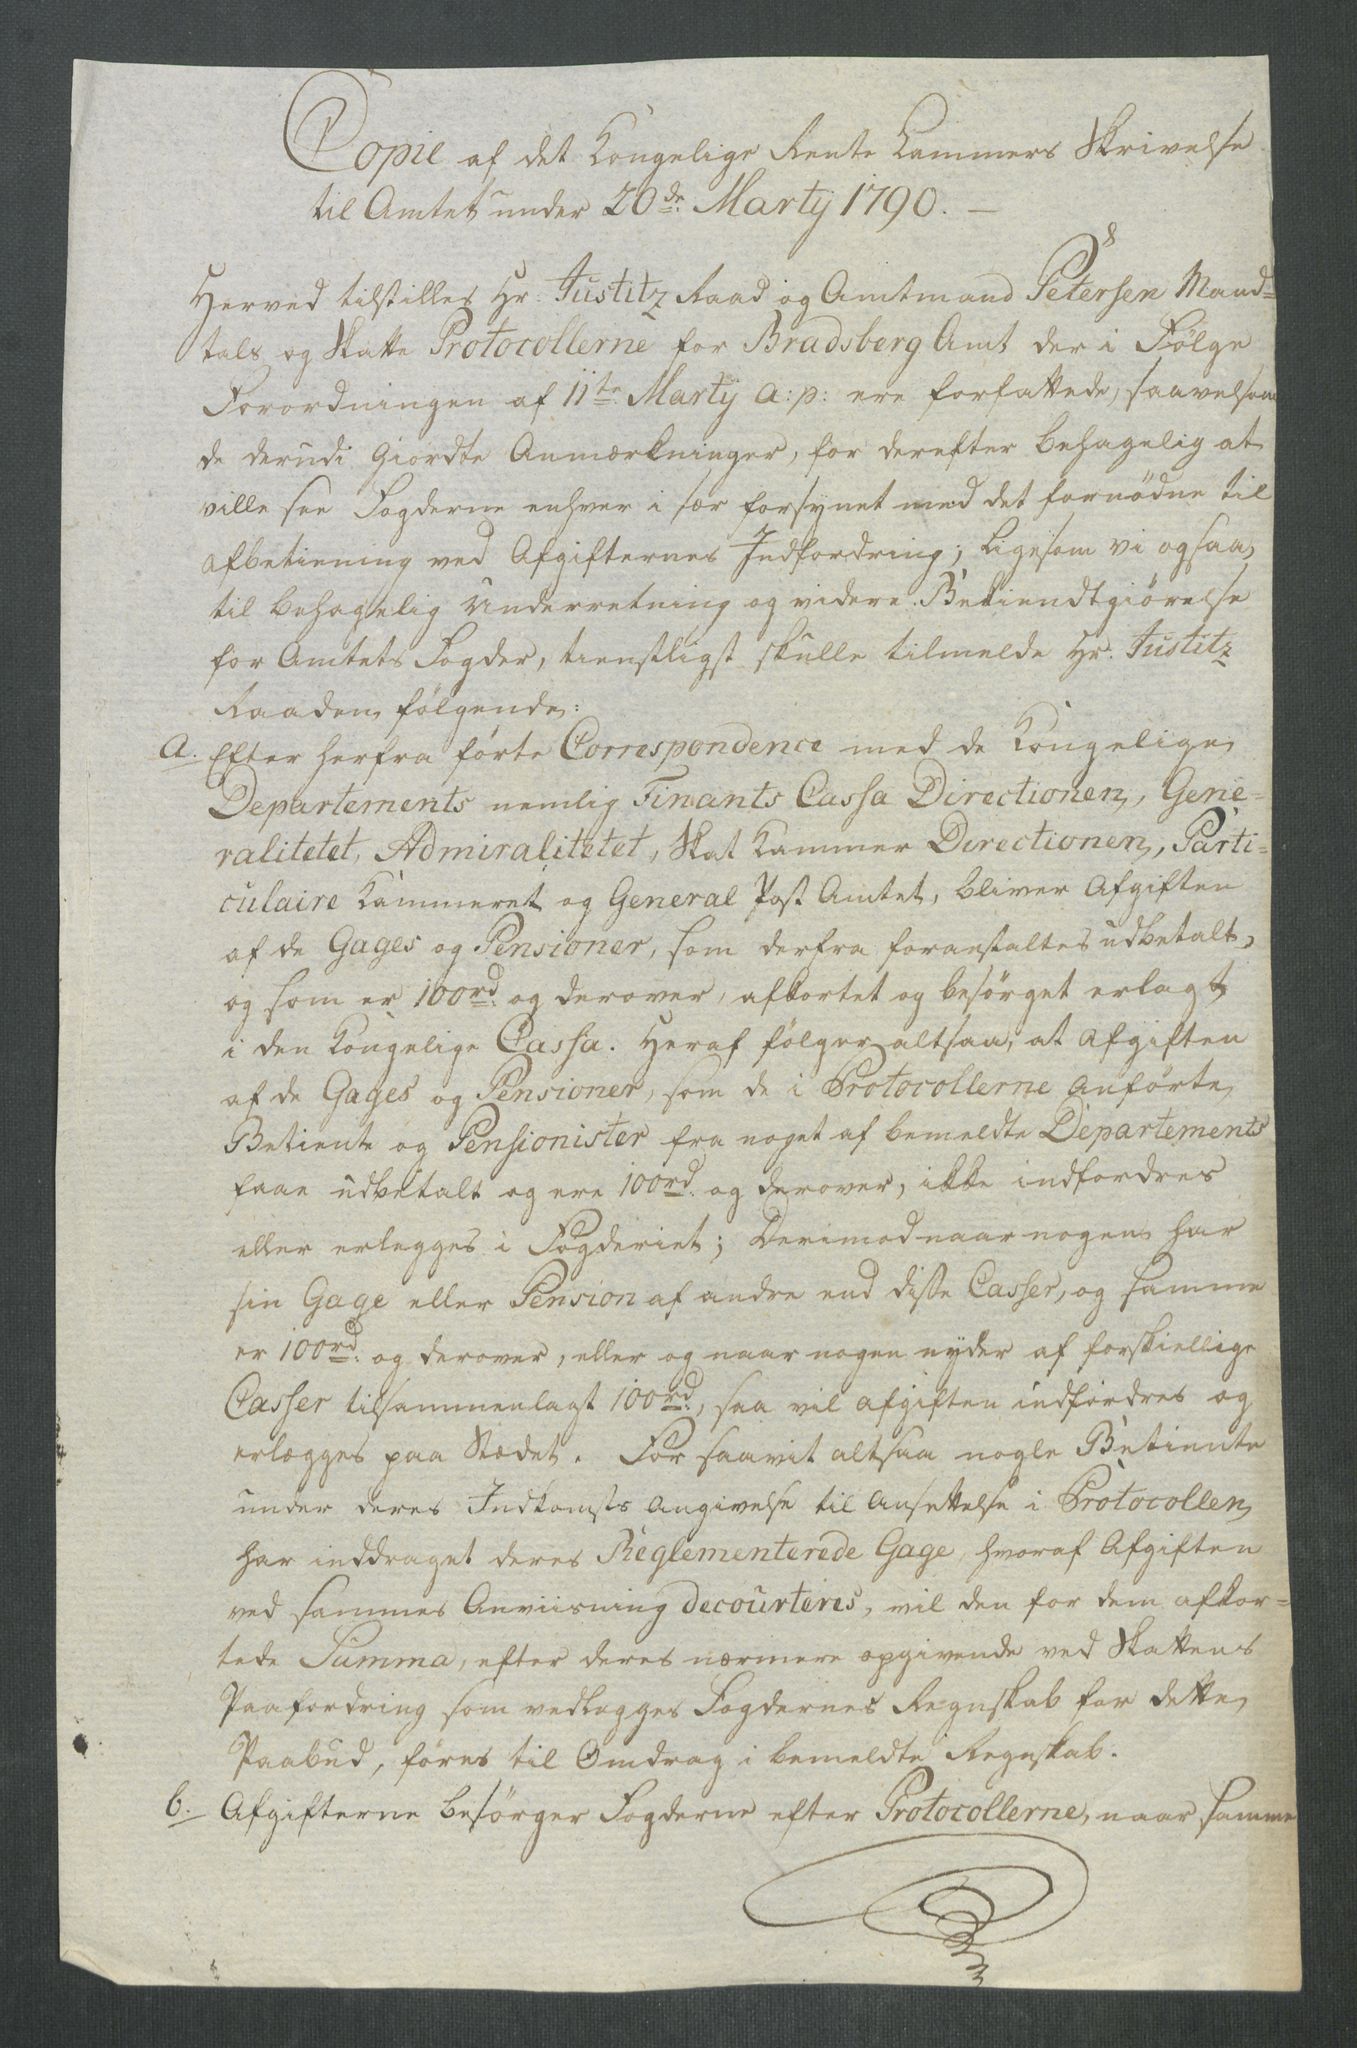 Copie af det Kongelige Rente Kammers Skrivelse
til Amtet under 20de Martij 1790. —
Herved tilstilles Hr. Justitz Raad og Amtmand Petersen Mand-
tals og Skatte Protocollerne for Bradsberg Amt der i Følge
Forordningen af 11te Martij a: p: ere forfattede, saavelsom
de derudi Giordte Anmærkninger, for derefter behagelig at
ville see Fogderne enhver i sær forsynet med det fornødne til
afbetiening ved Afgifternes Indfordring; Ligesom vi ogsaa,
til behagelig Underretning og videre Bekiendtgiørelse
for Amtets Fogder, tienstligst skulle tilmelde Hr. Justitz
Raaden følgende:
a. Efter herfra førte Correspondence med de Kongelige
Departements nemlig Finants Cassa Directionen, Gene-
ralitetet, Admiralitetet, Skat Kammer Directionen, Parti-
culaire Kammeret og General Post Amtet, bliver Afgiften
af de Gages og Pensioner, som derfra foranstaltes udbetalt,
og som er 100rd. og derover, afkortet og besørget erlagt
i den Kongelige Cassa. Heraf følger altsaa, at Afgiften
af de Gages og Pensioner, som de i Protocollerne anførte
Betiente og Pensionister fra noget af bemeldte Departements
faae udbetalt og ere 100rd. og derover, ikke indfordres
eller erlegges i Fogderiet; Derimod naar nogen har
sin Gage eller Pension af andre end disse Casser, og samme
er 100rd. og derover, eller og naar nogen nyder af forskiellige
Casser tilsammenlagt 100rd., saa vil afgiften indfordres og
erlægges paa Stædet. For saavit altsaa nogle Betiente
under deres Indkomsts Angivelse til Ansettelse i Protocollen
har inddraget deres Reglementerede Gage, hvoraf Afgiften
ved sammes Anviisning decourteres, vil den for dem afkor-
tede Summa, efter deres nærmere opgivende ved Skattens
Paafordring som vedlegges Fogdernes Regnskab for dette
Paabud, føres til Omdrag i bemeldte Regnskab.
b. Afgifterne besørger Fogderne efter Protocollerne, naar samme